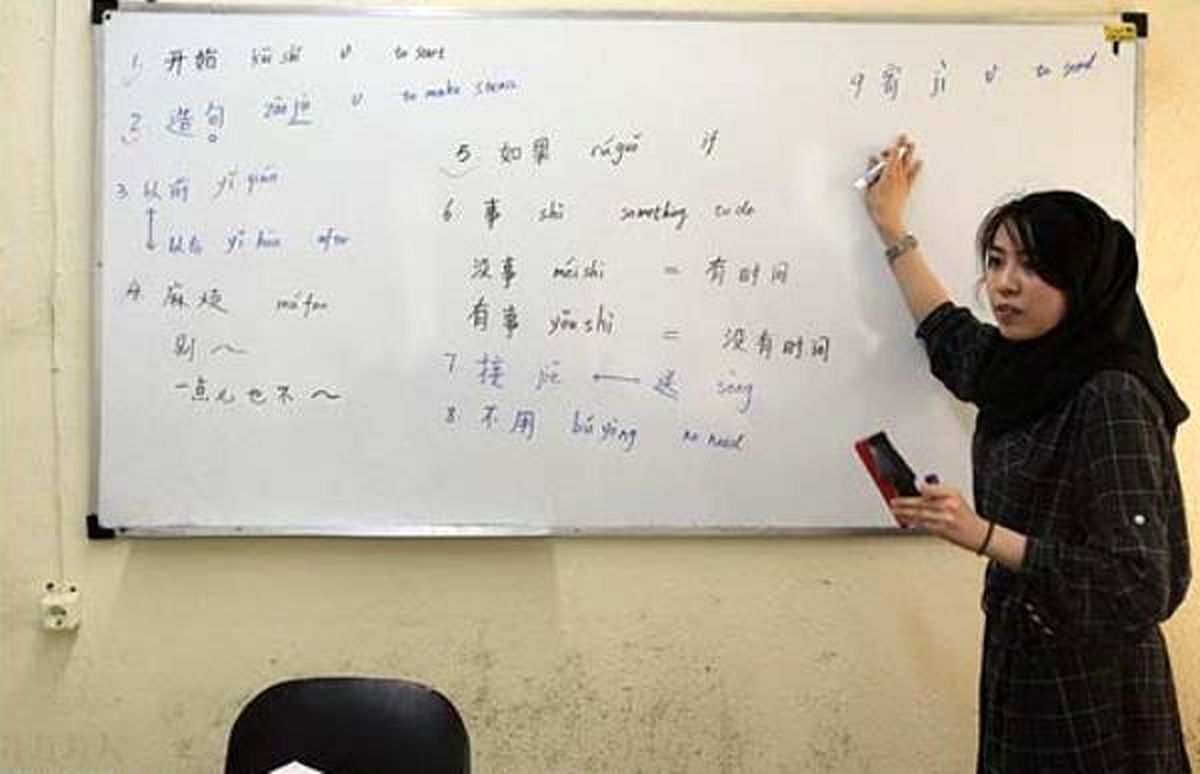 1. 开始 kāi shǐ v to start
2. 造句 zào jù v to make
3 以前 yǐ qián
以后 yǐ hòu after
4. 麻烦 má fan
别～
一点儿也不～
5 如果 rúguǒ if
6 事 shì something to do
没事 méi shì = 有时间
有事 yǒu shì = 没有时间
7 接 jiē ⟷ 送 sòng
8 不用 bú yòng no need
9 寄 jì v to send